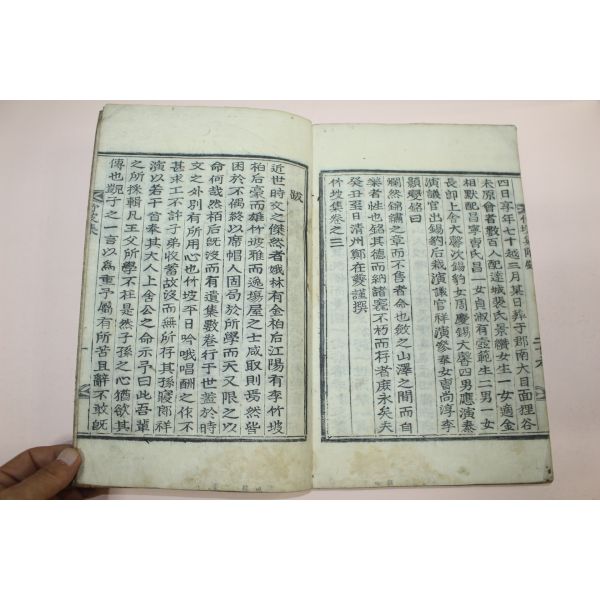 四日享年七十越三月某日葬于郡南大目面狸谷
未原會者數百人配達城裴氏景纘女生一女適金
相默配昌寧曺氏昌一女貞淑有壼範生二男一女
長卽上舍大馨次錫豹女周慶錫大馨四男應演泰
演議官出錫豹后栽演議官祥演參奉女曺尚淳李
顯燮銘曰
爛然錦繡之章而不售者命也斂之山澤之間而自
樂者性也銘其德而納諸竁不朽而存者庶永矣夫
癸丑至日清州鄭在夔謹撰
竹坡集卷之三
跋
近世時文之傑然者娥林有金柏后江陽有李竹坡
柏后豪而雄竹坡雅而逸場屋之士咸取則焉然皆
困於不偶終以席帽人固局於所學而天又限之以
命何哉然柏后旣沒而有遺集數卷行于世蓋於時
文之外別有所用心也竹坡平日吟哦唱酬之作不
甚求工不許子弟收蓄故沒而無所存其孫寢郎祥
演以若干首奉其大人上舍公之命示予曰此吾輩
之所採輯凡王父所學不枉是然子孫之心猶欲其
傳也覬子之一言以爲重予屬有所苦且辭不敢旣